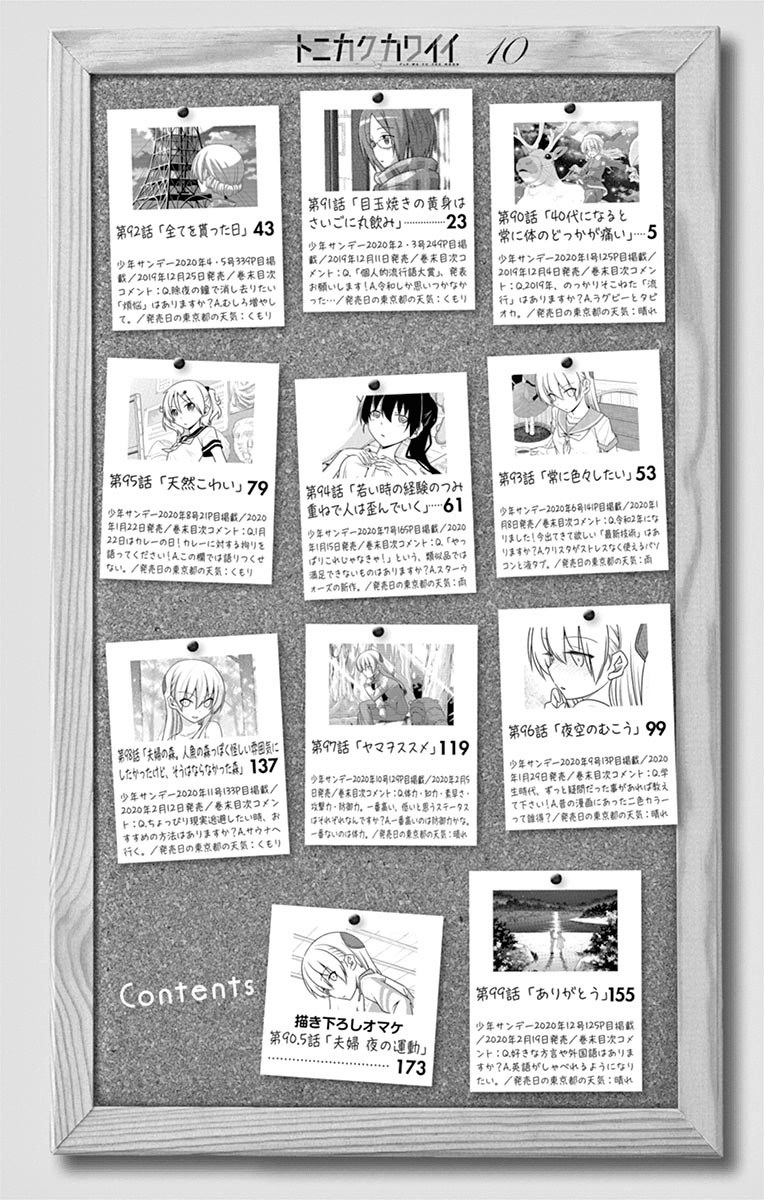 トニカクカワイイ 10
FLY ME TO THE MOON
第90話「40代になると
常に体のどっかが痛い」…5
少年サンデー2020年1号125P目掲
載/2019年12月4日発売/巻末目次
コメント：Q.2019年、のっかりそこねた「流
行」はありますか？A.ラグビーとタピ
オカ。/発売日の東京都の天気：晴れ
第91話「目玉焼きの黄身は
さいごに丸飲み」……………23
少年サンデー2020年2・3号249P目掲
載/2019年12月11日発売/巻末目次コ
メント：Q.「個人的流行語大賞」、発表
お願いします！A.令和しか思いつかなか
った…/発売日の東京都の天気：くもり
第92話「全てを貰った日」43
少年サンデー2020年4・5号339P目掲
載/2019年12月25日発売/巻末目次
コメント：Q.除夜の鐘で消し去りたい
「煩悩」はありますか？A.むしろ増やし
て。/発売日の東京都の天気：くもり
第93話「常に色々したい」53
少年サンデー2020年6号141P目掲載/2020年1
月8日発売/巻末目次コメント：Q.令和2年にな
りました！今出てきて欲しい「最新技術」はあ
りますか？A.クリスタがストレスなく使えるパソ
コンと液タブ。/発売日の東京都の天気：雨
第94話「若い時の経験のつみ
重ねで人は歪んでいく」……61
少年サンデー2020年7号165P目掲載/2020
年1月15日発売/巻末目次コメント：Q.「やっ
ぱりこれじゃなきゃ！」という、類似品では
満足できないものはありますか？A.スターウ
ォーズの新作。/発売日の東京都の天気：雨
第95話「天然こわい」79
少年サンデー2020年8号21P目掲載/2020
年1月22日発売/巻末目次コメント：Q.1月
22日はカレーの日！カレーに対する拘りを
語ってください！A.この欄では語りつくせ
ない。/発売日の東京都の天気：くもり
第96話「夜空のむこう」99
少年サンデー2020年9号13P目掲載/2020
年1月29日発売/巻末目次コメント：Q.学
生時代、ずっと疑問だった事があれば教え
て下さい！A.昔の漫画にあった二色カラー
って誰得？/発売日の東京都の天気：晴れ
第97話「ヤマヲススメ」119
少年サンデー2020年10号129P目掲載/2020年2月5
日発売/巻末目次コメント：Q.体力・知力・素早さ・
攻撃力・防御力。一番高い、低いと思うステータス
はそれぞれなんですか？A.一番高いのは防御力かな。
一番ないのは体力。/発売日の東京都の天気：晴れ
第98話「夫婦の森。人魚の森っぽく怪しい雰囲気に
したかったけど、そうはならなかった森」137
少年サンデー2020年11号133P目掲載/
2020年2月12日発売/巻末目次コメン
ト：Q.ちょっぴり現実逃避したい時、お
すすめの方法はありますか？A.サウナへ
行く。/発売日の東京都の天気：くもり
第99話「ありがとう」155
少年サンデー2020年12号125P目掲載
/2020年2月19日発売/巻末目次コメ
ント：Q.好きな方言や外国語はありま
すか？A.英語がしゃべれるようになり
たい。/発売日の東京都の天気：晴れ
描き下ろしオマケ
第90.5話「夫婦 夜の運動」
……………………173
Contents